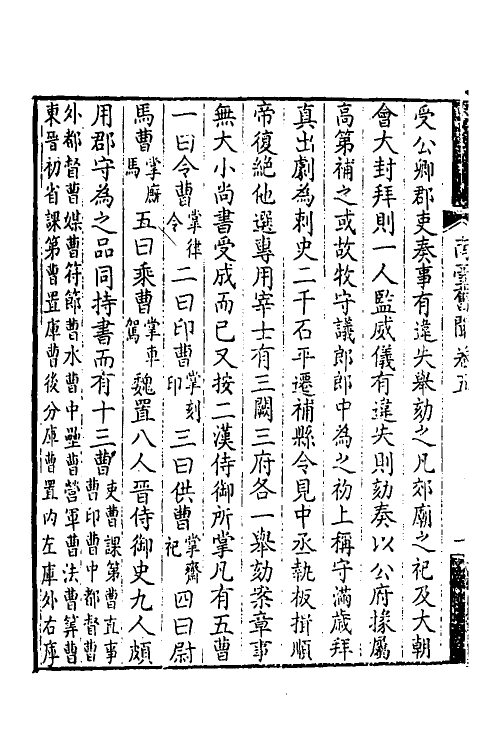 受公卿郡吏奏事有違失舉劾之凡郊廟之祀及大朝
會大封拜則一人監威儀有違失則劾奏以公府掾屬
高第補之或故牧守議郎郎中為之初上稱守滿歲拜
真出劇為刺史二千石平遷補縣令見中丞執板揖順
帝復絕他選專用宰士有三闕三府各一舉劾案章事
無大小尚書受成而已又按二漢侍御所掌凡有五曹
一曰令曹掌律令二曰印曹掌刻印三曰供曹掌齋祀四曰尉
馬曹掌廄馬五曰乘曹掌車駕魏置八人晉侍御史九人頗
用郡守為之品同持書而有十三曹吏曹課第曹直事
曹印曹中都督曹
外都督曹媒曹符節曹水曹中壘曹營軍曹法曹算曹
東晉初省課第曹置庫曹後分庫曹置內左庫外右庫
南臺舊聞卷五
一